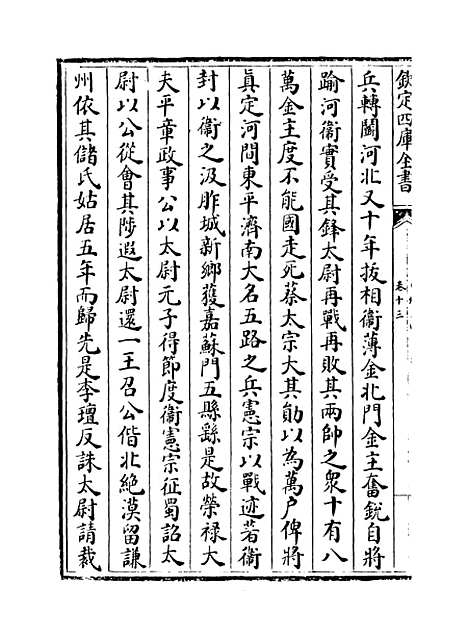 欽定四庫全書
卷十三
兵轉鬭河北又十年拔相衞薄金北門金主奮銳自將
踰河衞實受其鋒太尉再戰再敗其兩帥之衆十有八
萬金主度不能國走死蔡太宗大其勛以為萬户俾將
真定河間東平濟南大名五路之兵憲宗以戰迹若衞
封以衞之汲胙城新鄉獲嘉蘇門五縣繇是故榮禄大
夫平章政事公以太尉元子得節度衞憲宗征蜀詔太
尉以公從會其陟遐太尉還一王召公偕北絶漠留謙
州依其儲氏姑居五年而歸先是李璮反誅太尉請裁